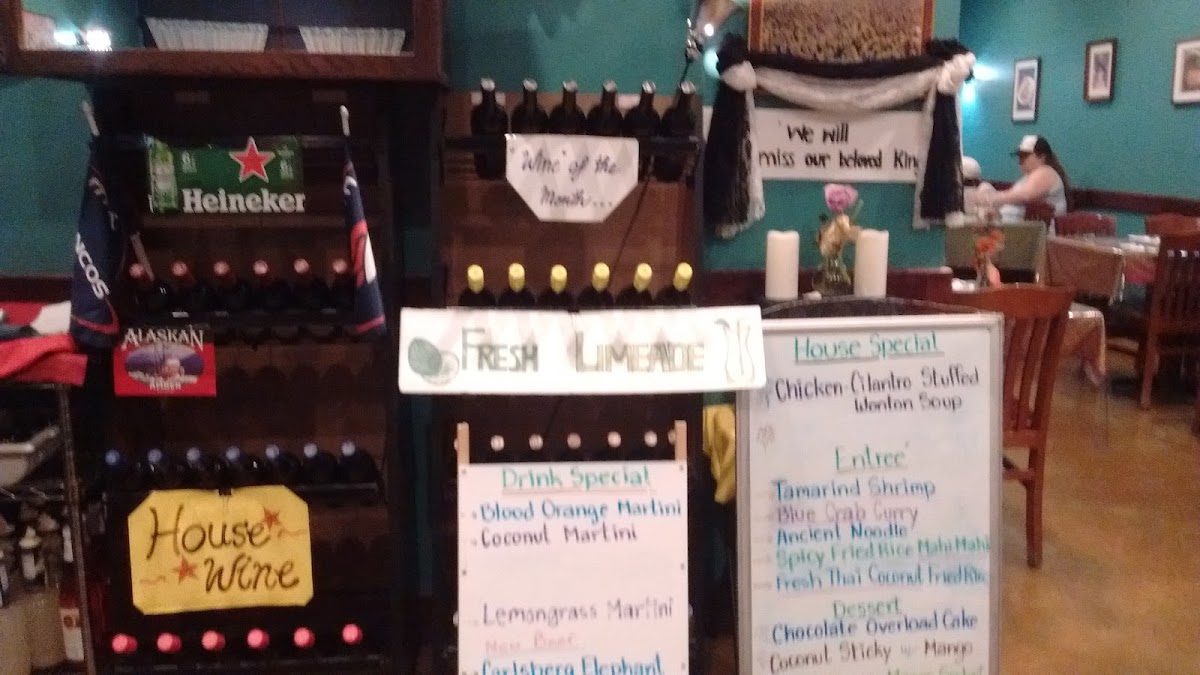 Heineker
NCOS
ALASKAN
AMBER
"Wine" of the
Month...
"We will
miss our beloved King
FRESH LIMEADE
House Wine
Drink Special
Blood Orange Martini
Coconut Martini
Lemongrass Martini
New Beer
Carlsberg Elephant
House Special
Chicken Cilantro Stuffed
Wonton Soup
Entree'
Tamarind Shrimp
Blue Crab Curry
Ancient Noodle
Spicy Fried Rice Mahi Mahi
Fresh Thai Coconut Fried Rice
Dessert
Chocolate Overload Cake
Coconut Sticky w Mango